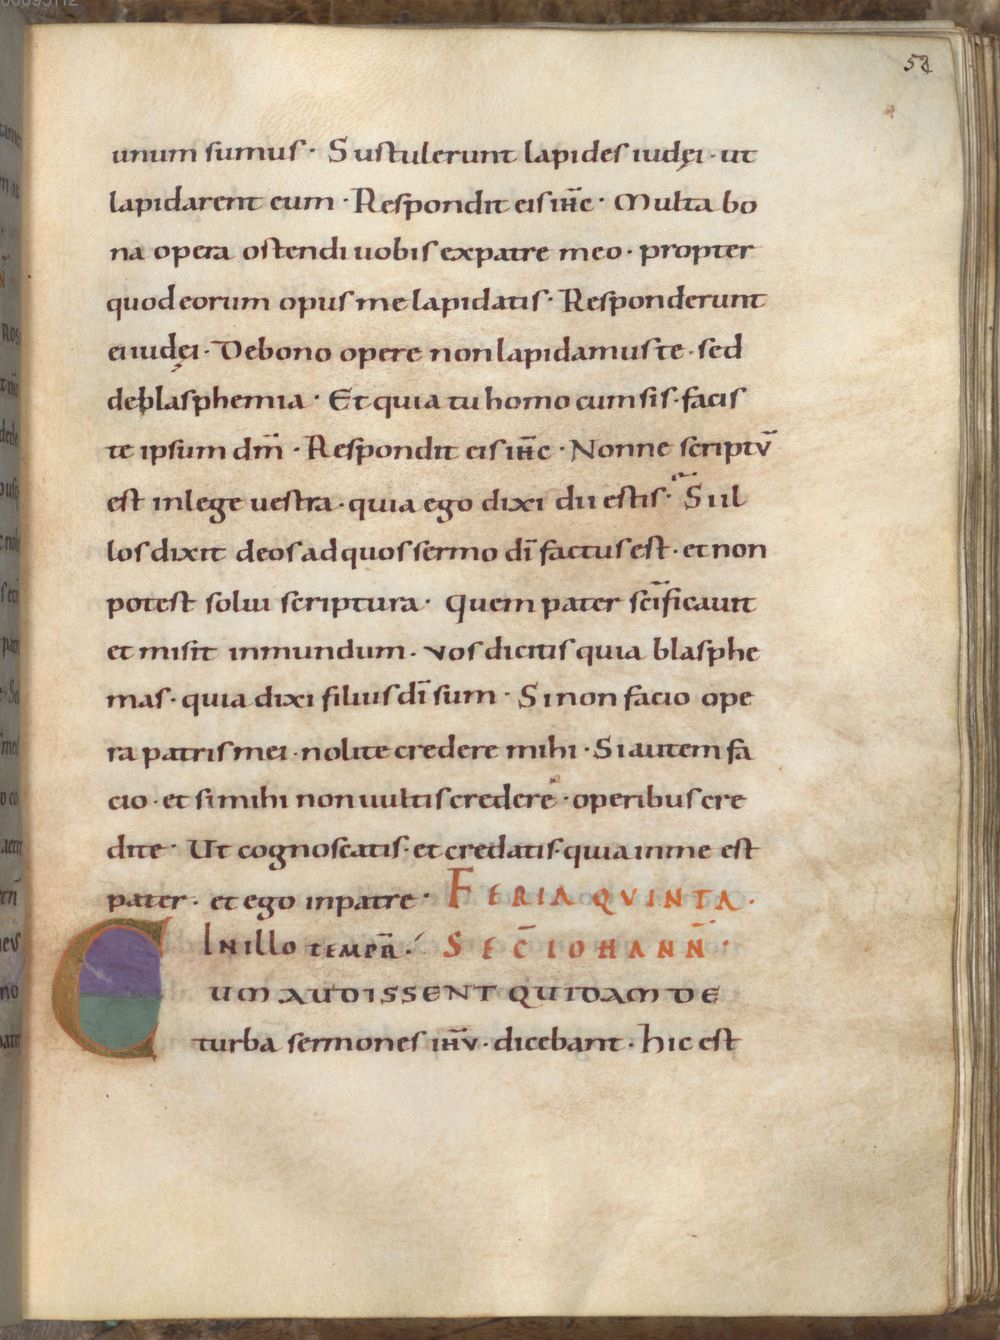 53
unum sumus · Sustulerunt lapides iudęi · ut
lapidarent eum · Respondit eis ih̅c · Multa bo
na opera ostendi uobis ex patre meo · propter
quod eorum opus me lapidatis · Responderunt
ei iudęi · De bono opere non lapidamus te · sed
de blasphemia · Et quia tu homo cum sis · facis
te ipsum dm̅ · Respondit eis ih̅c · Nonne scriptv̅
est in lege uestra · quia ego dixi dii estis · Si il
los dixit deos ad quos sermo di̅ factus est · et non
potest solui scriptura · Quem pater sci̅ficauit
et misit in mundum · vos dicitis quia blasphe
mas · quia dixi filius di̅ sum · Si non facio ope
ra patris mei · nolite credere mihi · Si autem fa
cio · et si mihi non uultis credere · operibus cre
dite · Ut cognoscatis · et credatis · quia in me est
pater · et ego in patre · FERIA QVINTA ·
In illo tempr̅ · SEC̅ IOHANN̅ ·
CUM AUDISSENT QUIDAM DE
turba sermones ih̅v · dicebant · hic est